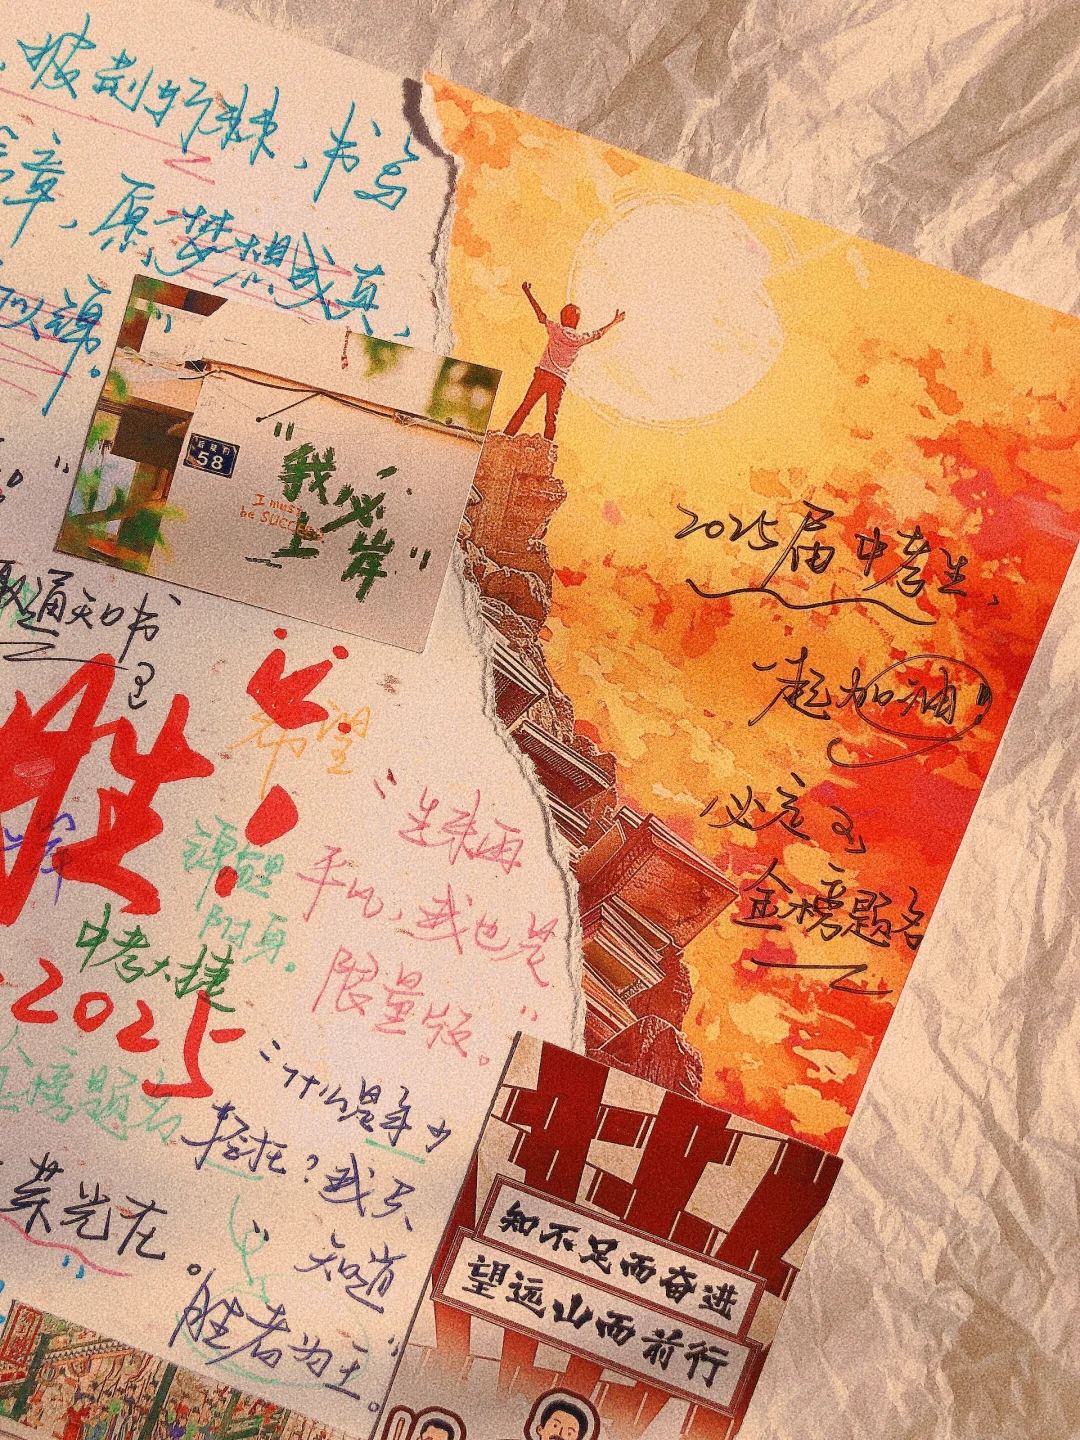 披荆斩棘，书写
章，愿梦想成真，
以
58
"我必
I must
be SUCCE
上岸"
取通知书
必
胜
希望
2025
中考大捷
金榜题名
"生来而
平凡，或也是
限量版。"
"什么是年少
轻狂？我只
知道
胜者为王。"
荣光在。
2025届中考生，
一起加油！
必定
金榜题名
知不足而奋进
望远山而前行